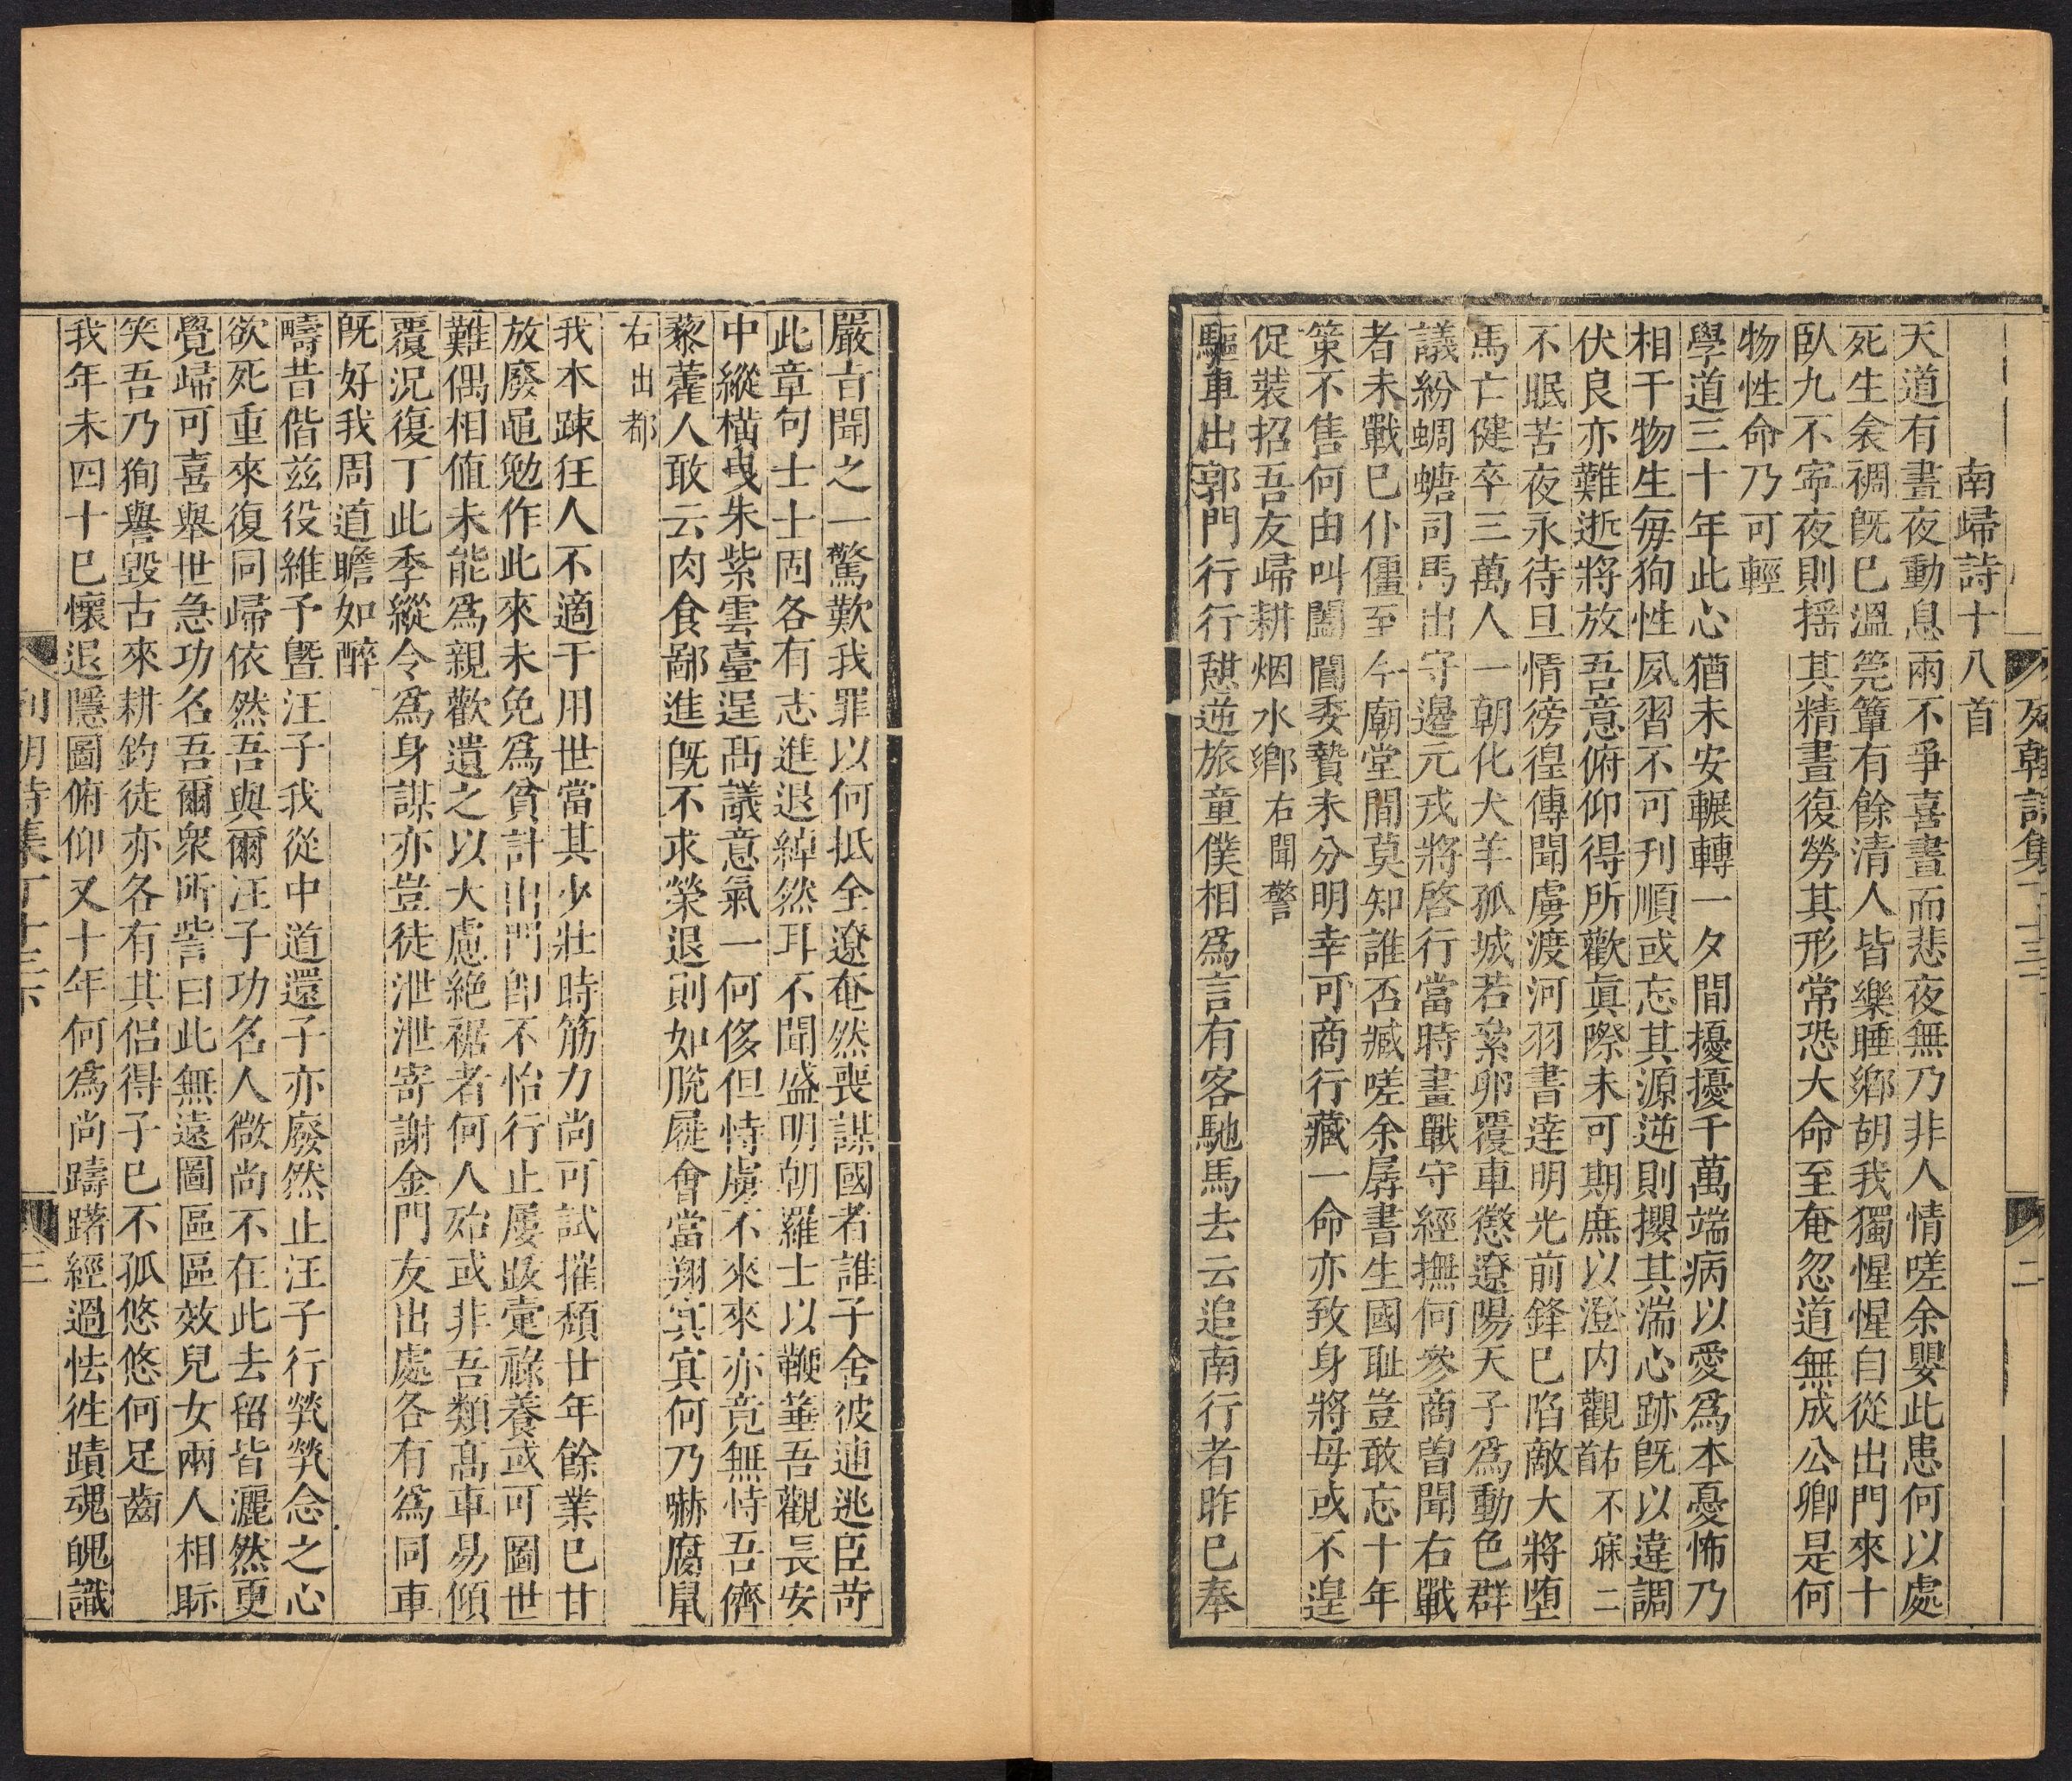 南歸詩十八首
天道有晝夜動息兩不爭喜晝而悲夜無乃非人情嗟余嬰此患何以處
死生衾裯既已溫筦簟有餘清人皆樂睡鄉胡我獨惺惺自從出門來十
臥九不寧夜則揺其精晝復勞其形常恐大命至奄忽道無成公卿是何
物性命乃可輕
學道三十年此心猶未安輾轉一夕間擾擾千萬端病以愛為本憂怖乃
相干物生每狥性夙習不可刋順或忘其源逆則攖其湍心跡既以違調
伏良亦難逝將放吾意俯仰得所歡眞際未可期庶以澄内觀右不寐二首
不眠苦夜永待旦情徬徨傳聞虜渡河羽書達明光前鋒已陷敵大將堕
馬亡健卒三萬人一朝化犬羊孤城若絫卵覆車懲遼陽天子為動色群
議紛蜩螗司馬出守邊元戎將啓行當時晝戰守經撫何參商曽聞右戰
者未戰已仆僵至今廟堂間莫知誰否臧嗟余孱書生國耻豈敢忘十年
策不售何由叫閶闔委贄未分明幸可商行藏一命亦致身將母或不遑
促裝招吾友歸耕烟水鄉右聞警
驅車出郭門行行憇逆旅童僕相為言有客馳馬去云追南行者昨已奉
二
嚴㫖聞之一驚歎我罪以何抵全遼奄然喪謀國者誰子舍彼逋逃臣苛
此章句士士固各有志進退綽然耳不聞盛明朝羅士以鞭箠吾觀長安
中縱横曳朱紫雲臺逞髙議意氣一何侈但恃虜不來來亦竟無恃吾儕
藜藿人敢云肉食鄙進既不求榮退則如脱屣會當翔㝠㝠何乃嚇腐鼠
右出都
我本踈狂人不適于用世當其少壯時筋力尚可試摧頹廿年餘業已甘
放廢黽勉作此來未免為貧計出門卽不怡行止屢㪅寁祿養或可圖世
難偶相値未能為親歡遺之以大慮絶裾者何人殆或非吾類髙車易傾
覆況復丁此季縱令為身謀亦豈徒泄泄寄謝金門友出處各有為同車
既好我周道瞻如醉
疇昔偕兹役維予曁汪子我從中道還子亦廢然止汪子行煢煢念之心
欲死重來復同歸依然吾與爾汪子功名人微尚不在此去留皆灑然更
覺歸可喜舉世急功名吾爾衆所訾曰此無遠圖區區效兒女兩人相眎
笑吾乃狥譽毀古來耕釣徒亦各有其侶得子已不孤悠悠何足齒
我年未四十已懷退隱圖俯仰又十年何為尚躊躇經過怯徃蹟魂魄識
三